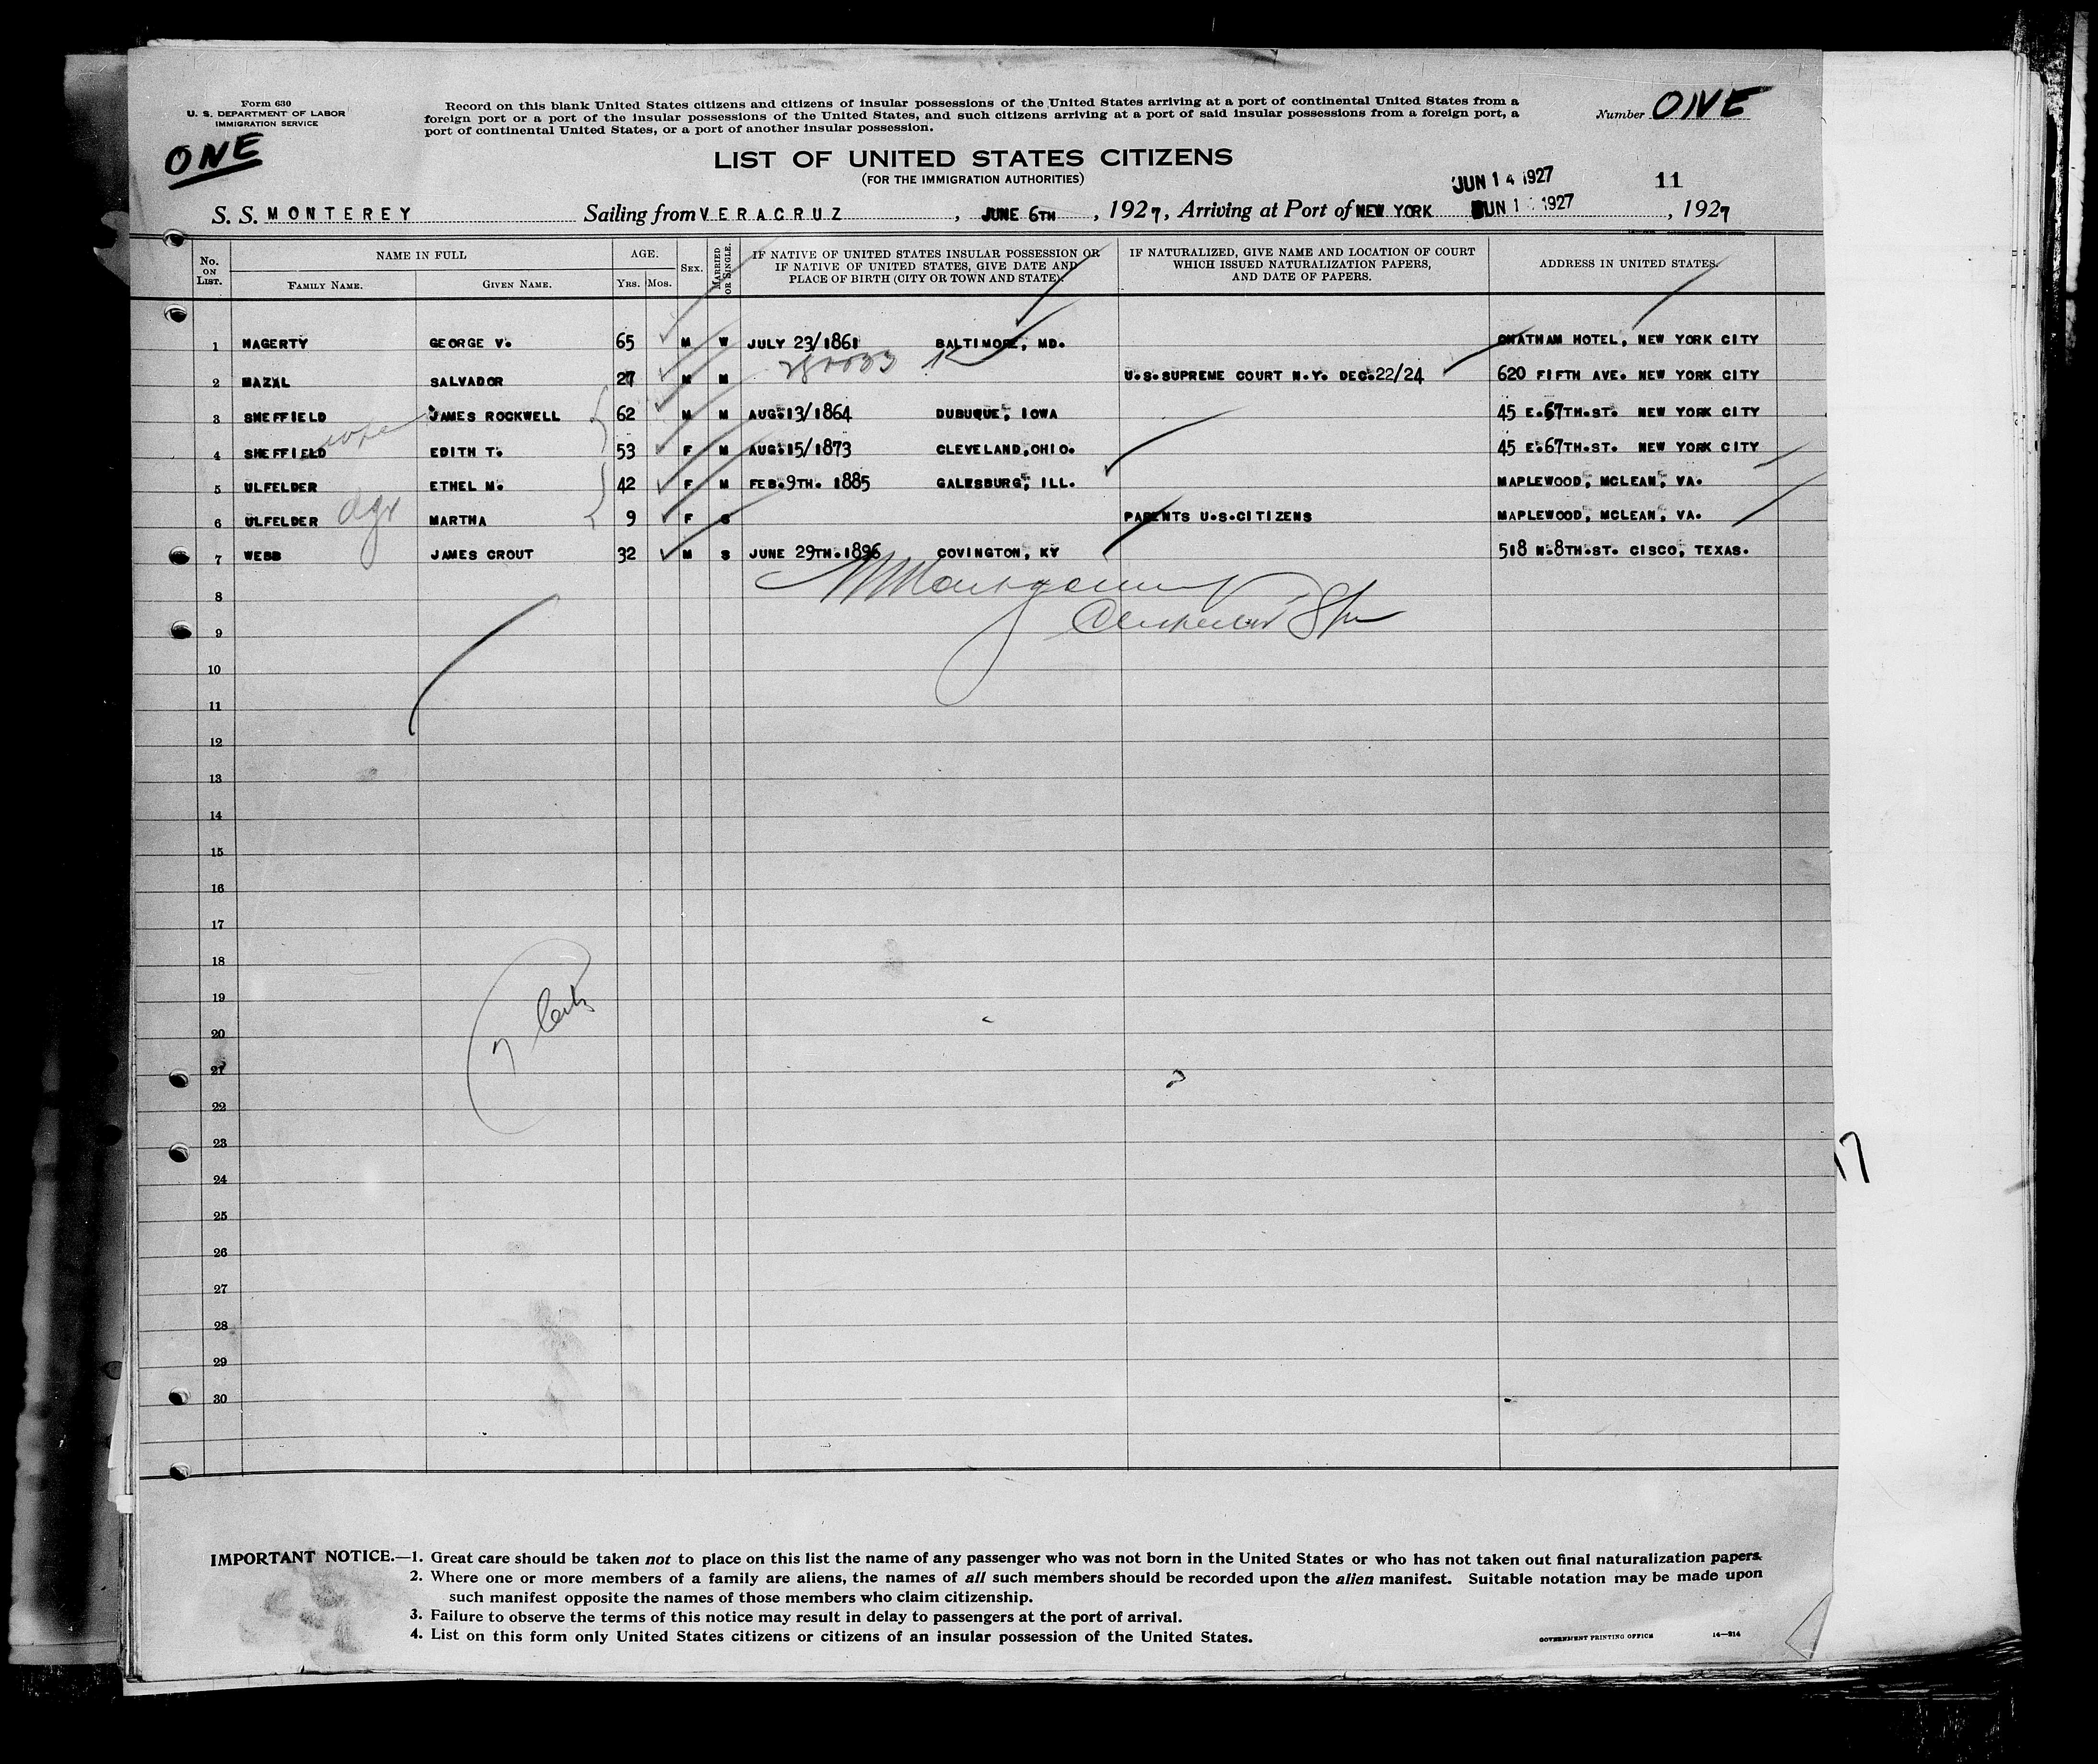 Form 630
U. S. DEPARTMENT OF LABOR
IMMIGRATION SERVICE
ONE
Record on this blank United States citizens and citizens of insular possessions of the United States arriving at a port of continental United States from a
foreign port or a port of the insular possessions of the United States, and such citizens arriving at a port of said insular possessions from a foreign port, a
port of continental United States, or a port of another insular possession.
Number ONE
LIST OF UNITED STATES CITIZENS
(FOR THE IMMIGRATION AUTHORITIES)
JUN 14 1927
11
S. S. MONTEREY Sailing from VERACRUZ, JUNE 6TH, 1927, Arriving at Port of NEW YORK JUN 1 1927, 1927
No. ON LIST. NAME IN FULL FAMILY NAME. GIVEN NAME. AGE. YRS. MOS. SEX. MARRIED OR SINGLE. IF NATIVE OF UNITED STATES INSULAR POSSESSION OR IF NATIVE OF UNITED STATES, GIVE DATE AND PLACE OF BIRTH (CITY OR TOWN AND STATE). IF NATURALIZED, GIVE NAME AND LOCATION OF COURT WHICH ISSUED NATURALIZATION PAPERS, AND DATE OF PAPERS. ADDRESS IN UNITED STATES.
1 HAGERTY GEORGE V. 65 M W JULY 23/1861 BALTIMORE, MD. CHATHAM HOTEL, NEW YORK CITY
2 MAZAL SALVADOR 27 M M U.S.SUPREME COURT N.Y. DEC.22/24 620 FIFTH AVE. NEW YORK CITY
3 SHEFFIELD JAMES ROCKWELL 62 M M AUG.13/1864 DUBUQUE, IOWA 45 E.67TH.ST. NEW YORK CITY
wife
4 SHEFFIELD EDITH T. 53 F M AUG.15/1873 CLEVELAND,OHIO. 45 E.67TH.ST. NEW YORK CITY
5 ULFELDER ETHEL M. 42 F M FEB.9TH. 1885 GALESBURG, ILL. MAPLEWOOD, MCLEAN, VA.
6 ULFELDER dgr MARTHA 9 F S PARENTS U.S.CITIZENS MAPLEWOOD, MCLEAN, VA.
7 WEBB JAMES CROUT 32 M S JUNE 29TH.1896 COVINGTON, KY 518 N.8TH.ST. CISCO, TEXAS.
8
9
10
11
12
13
14
15
16
17
18
19
20
21
22
23
24
25
26
27
28
29
30
17
IMPORTANT NOTICE.—1. Great care should be taken not to place on this list the name of any passenger who was not born in the United States or who has not taken out final naturalization papers.
2. Where one or more members of a family are aliens, the names of all such members should be recorded upon the alien manifest. Suitable notation may be made upon
such manifest opposite the names of those members who claim citizenship.
3. Failure to observe the terms of this notice may result in delay to passengers at the port of arrival.
4. List on this form only United States citizens or citizens of an insular possession of the United States.
GOVERNMENT PRINTING OFFICE 14—214